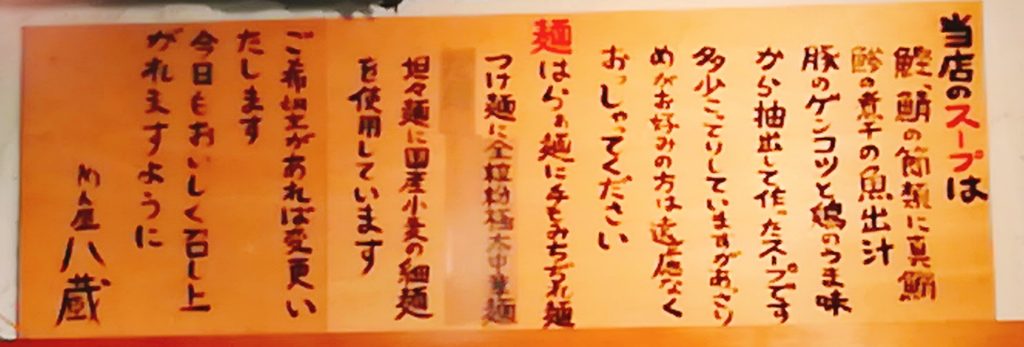 当店のスープは
鰹、鯖の節類に真鯛
鯵の煮干の魚出汁
豚のゲンコツと鶏のうま味
から抽出して作ったスープです
多少こってりしていますがあっさり
めがお好みの方は遠慮なく
おっしゃってください
麺はらぁ麺に手もみちぢれ麺
つけ麺に全粒粉極太中華麺
坦々麺に国産小麦の細麺
を使用しています
ご希望があれば変更い
たします
今日もおいしく召し上
がれますように
めん屋八蔵